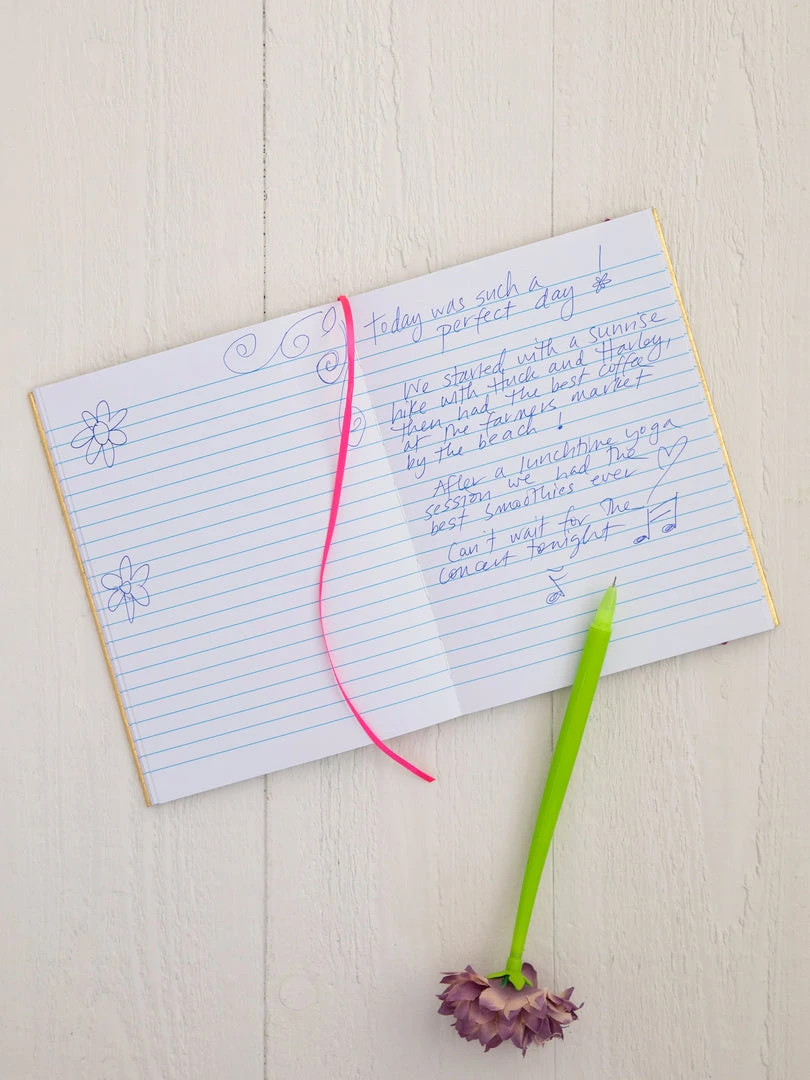 Today was such a
perfect day !
We started with a sunrise
hike with Huck and Harley,
then had the best coffee
at the farmers market
by the beach !
After a lunchtime yoga
session we had the
best smoothies ever
Can't wait for the
concert tonight